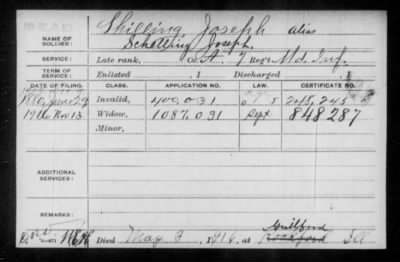 NAME OF SOLDIER: Shilling, Joseph alias
Schelling, Joseph.
SERVICE: Late rank, Co. A. 7 Reg't Md. Inf.
TERM OF SERVICE: Enlisted , 1 Discharged , 1
DATE OF FILING. CLASS. APPLICATION NO. LAW. CERTIFICATE NO.
1880, June 29 Invalid, 400,031 248,245
1916 Nov 13 Widow, 1087,031 Sept 848287
Minor,
ADDITIONAL SERVICES:
REMARKS:
Guilford
Died May 3, 1916, at Rockford Ill